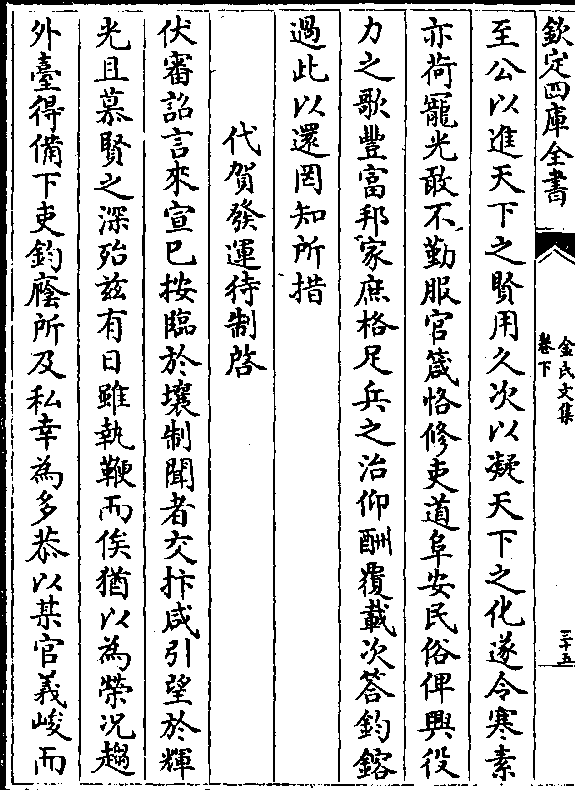 欽定四庫全書
金氏文集
卷下
三十五
至公以進天下之賢用久次以凝天下之化遂令寒素
亦荷寵光敢不勤服官箴恪修吏道阜安民俗俾興役
力之歌豐富邦家庶格足兵之治仰酬覆載次答鈞鎔
過此以還罔知所措
代賀發運待制啓
伏審詔言來宣巳按臨於壤制聞者交抃咸引望於輝
光且慕賢之深殆兹有日雖執鞭而俟猶以為榮况趨
外臺得備下吏鈞廕所及私幸為多恭以某官義峻而